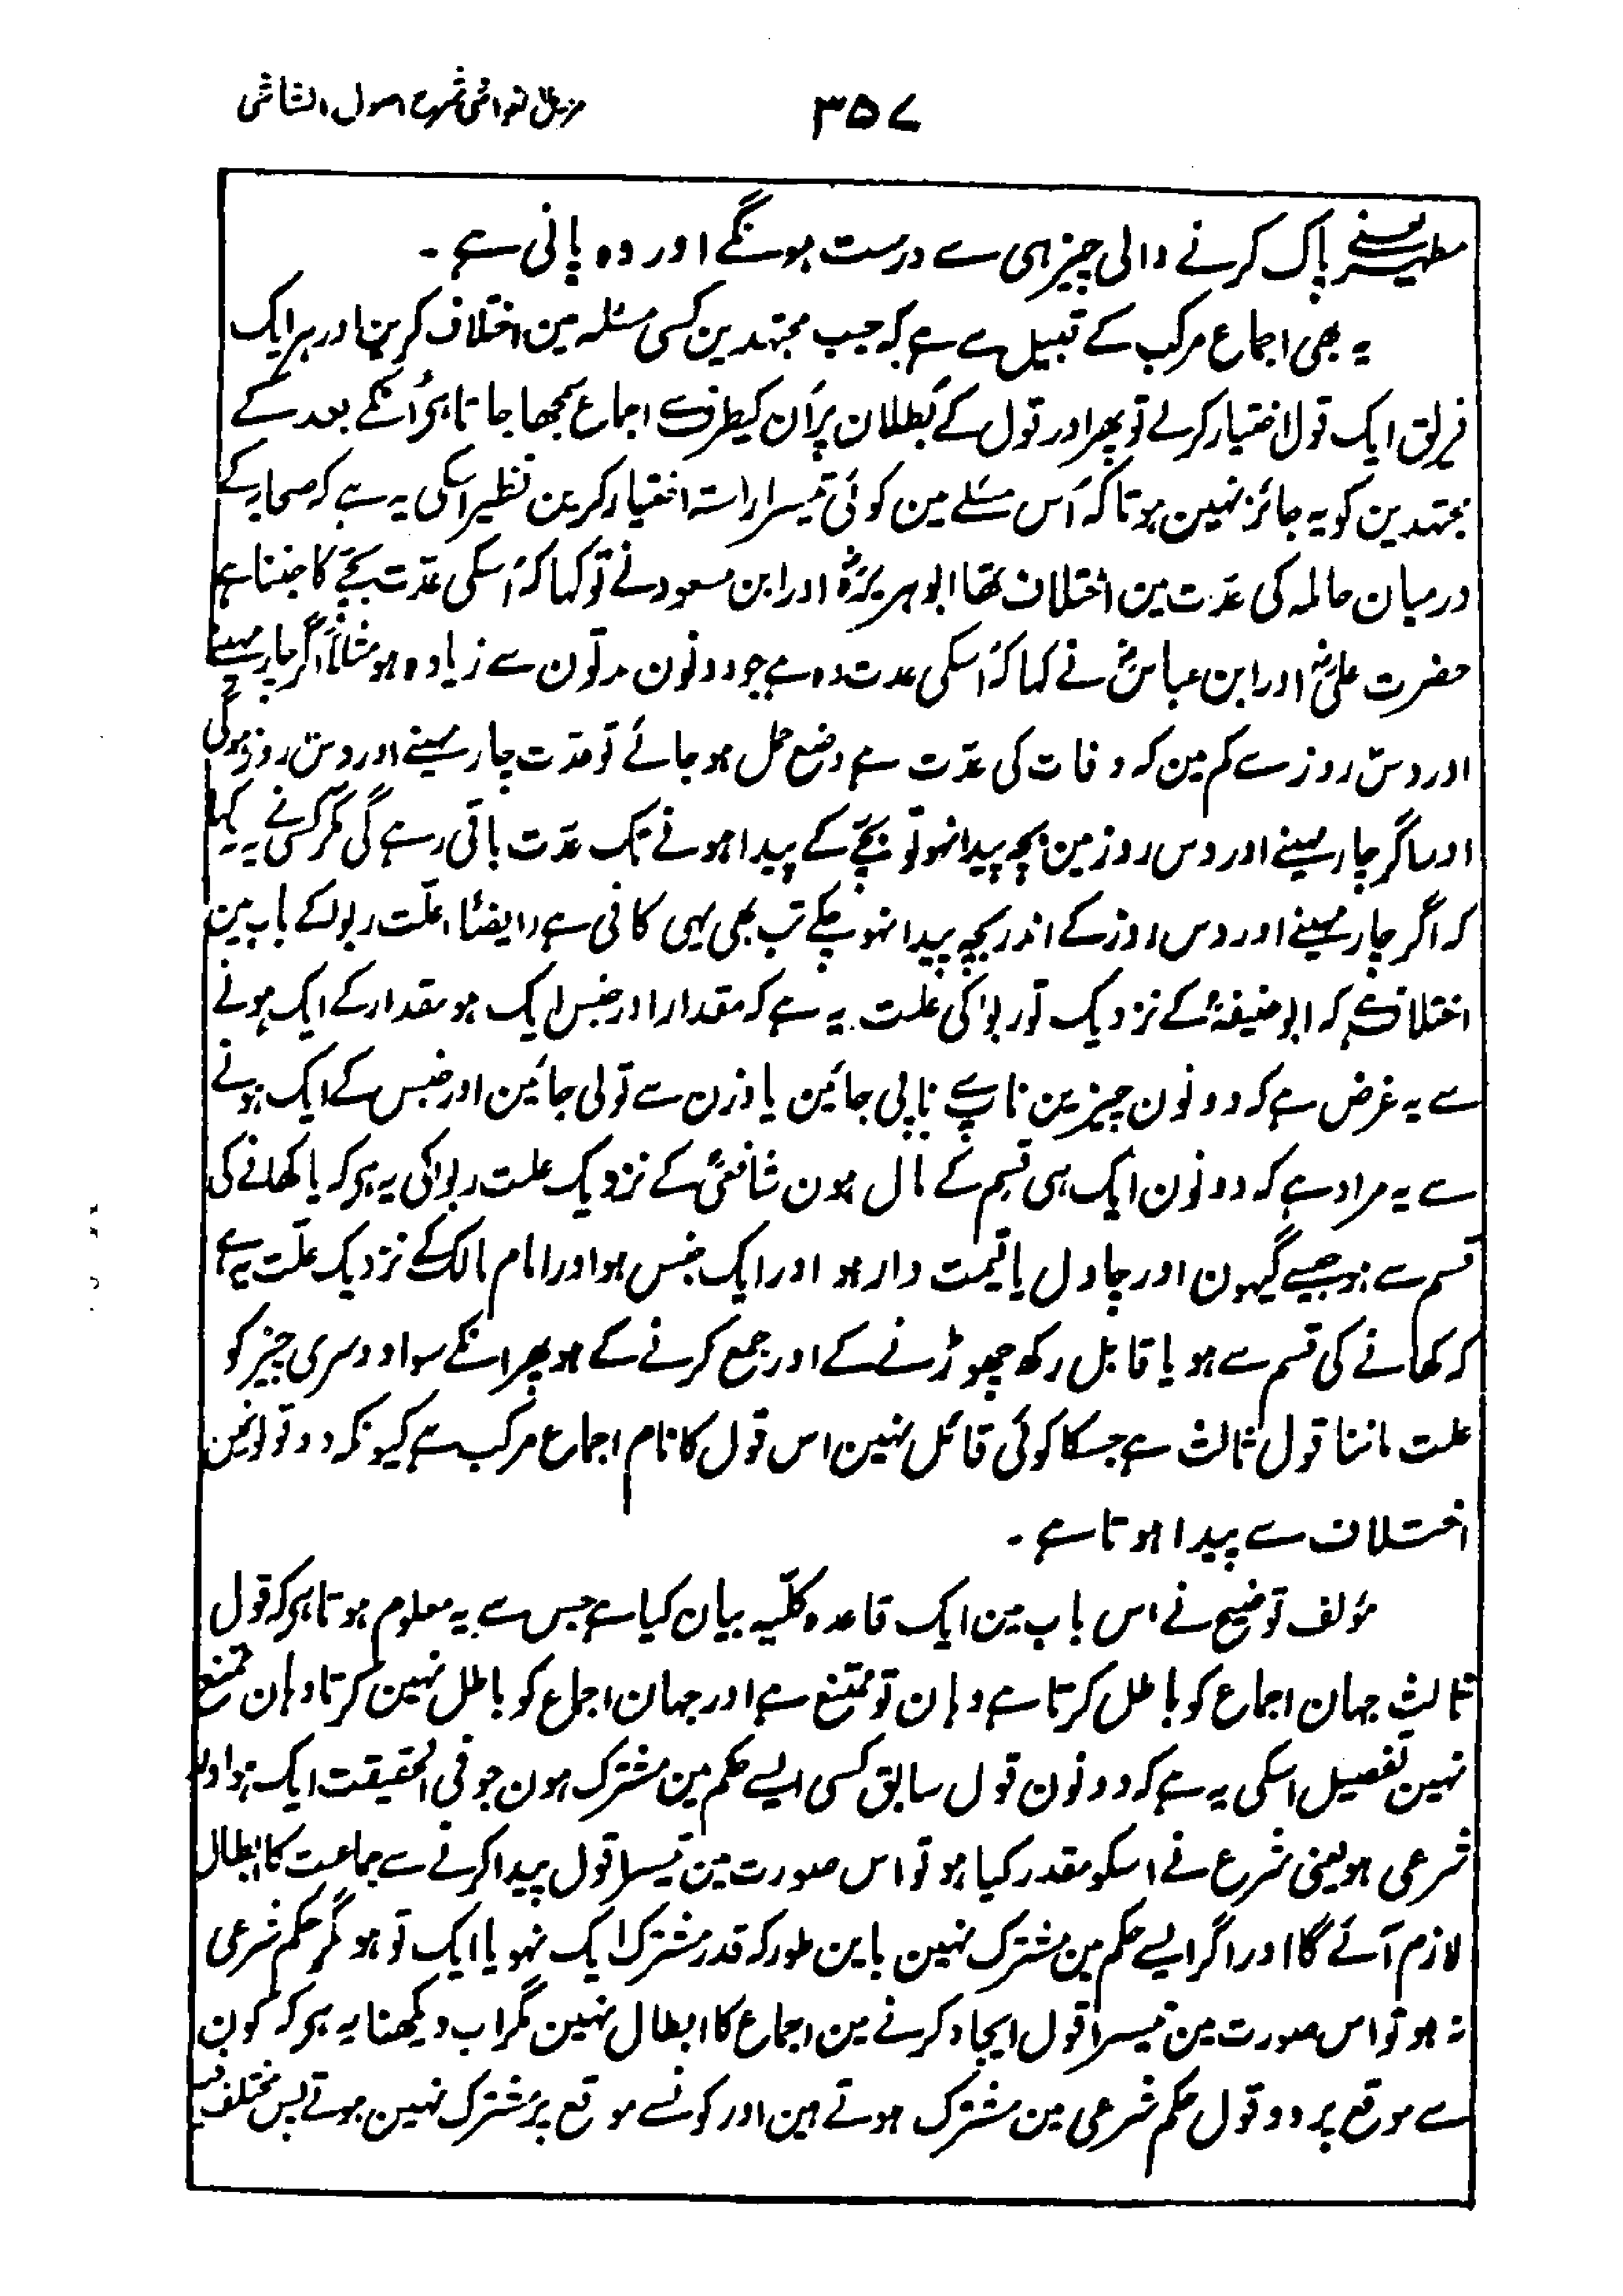 مزیل الغواشی شرح اصول الشاشی
۳۵۷
مطہر یعنے پاک کرنے والی چیز ہی سے درست ہونگے اور وہ پانی ہے ۔
یہ بھی اجماع مرکب کے قبیل سے ہے کہ جب مجتہدین کسی مسئلہ مین اختلاف کرین اور ہر ایک
فریق ایک قول اختیار کرلے تو پھر اور قول کے بطلان پر اُن کیطرف سے اجماع سمجھا جاتا ہی اُنکے بعد کے
مجتہدین کو یہ جائز نہین ہوتا کہ اُس مسئلے مین کوئی تیسرا راستہ اختیار کرین نظیر اسکی یہ ہے کہ صحابہ کے
درمیان حاملہ کی عدّت مین اختلاف تھا ابو ہریرہؓ اور ابن مسعود نے تو کہا کہ اُسکی عدّت بچّے کا جننا ہے
حضرت علیؓ اور ابن عباسؓ نے کہا کہ اُسکی عدت وہ ہے جو دونون مدتون سے زیادہ ہو مثلاً اگر چار مہینے
اور دس روز سے کم مین کہ وفات کی عدّت ہے وضع حمل ہو جائے تو عدّت چار مہینے اور دس روز ہوگی
اور اگر چار مہینے اور دس روز مین بچہ پیدا نہو تو بچّے کے پیدا ہونے تک عدّت باقی رہے گی مگر کسی نے یہ نہ کہا
کہ اگر چار مہینے اور دس روز کے اندر بچہ پیدا نہو چکے تب بھی یہی کافی ہے (ایضًا) علّت ربوا کے باب مین
اختلاف ہے کہ ابو حنیفہؒ کے نزدیک تو ربوا کی علت یہ ہے کہ مقدار اور جنس ایک ہو مقدار کے ایک ہونے
سے یہ غرض ہے کہ دونون چیزین ناپ سے ناپی جائین یا وزن سے تولی جائین اور جنس کے ایک ہونے
سے یہ مراد ہے کہ دونون ایک ہی قسم کے مال ہون شافعیؒ کے نزدیک علت ربوا کی یہ ہی کہ یا کھانے کی
قسم سے ہو جیسے گیہون اور چاول یا قیمت دار ہو اور ایک جنس ہو اور امام مالک کے نزدیک علّت یہ ہے
کہ کھانے کی قسم سے ہو یا قابل رکھ چھوڑنے کے اور جمع کرنے کے ہو پھر انکے سوا دوسری چیز کو
علت ماننا قول ثالث ہے جسکا کوئی قائل نہین اس قول کا نام اجماع مرکب ہے کیونکہ دو قولونمین
اختلاف سے پیدا ہوتا ہے ۔
مؤلف توضیح نے اس باب مین ایک قاعدہ کلّیہ بیان کیا ہے جس سے یہ معلوم ہوتا ہی کہ قول
ثالث جہان اجماع کو باطل کرتا ہے وہان تو ممتنع ہے اور جہان اجماع کو باطل نہین کرتا وہان ممتنع
نہین تفصیل اسکی یہ ہے کہ دونون قول سابق کسی ایسے حکم مین مشترک ہون جو فی الحقیقت ایک ہو اور
شرعی ہو یعنی شرع نے اسکو مقدر کیا ہو تو اس صورت مین تیسرا قول پیدا کرنے سے جماعت کا ابطال
لازم آئے گا اور اگر ایسے حکم مین مشترک نہین باین طور کہ قدر مشترک ایک نہو یا ایک تو ہو مگر حکم شرعی
نہ ہو تو اس صورت مین تیسرا قول ایجاد کرنے مین اجماع کا ابطال نہین مگر اب دیکھنا یہ ہی کہ کون
سے موقع پر دو قول حکم شرعی مین مشترک ہوتے ہین اور کونسے موقع پر مشترک نہین ہوتے پس مختلف فیہ